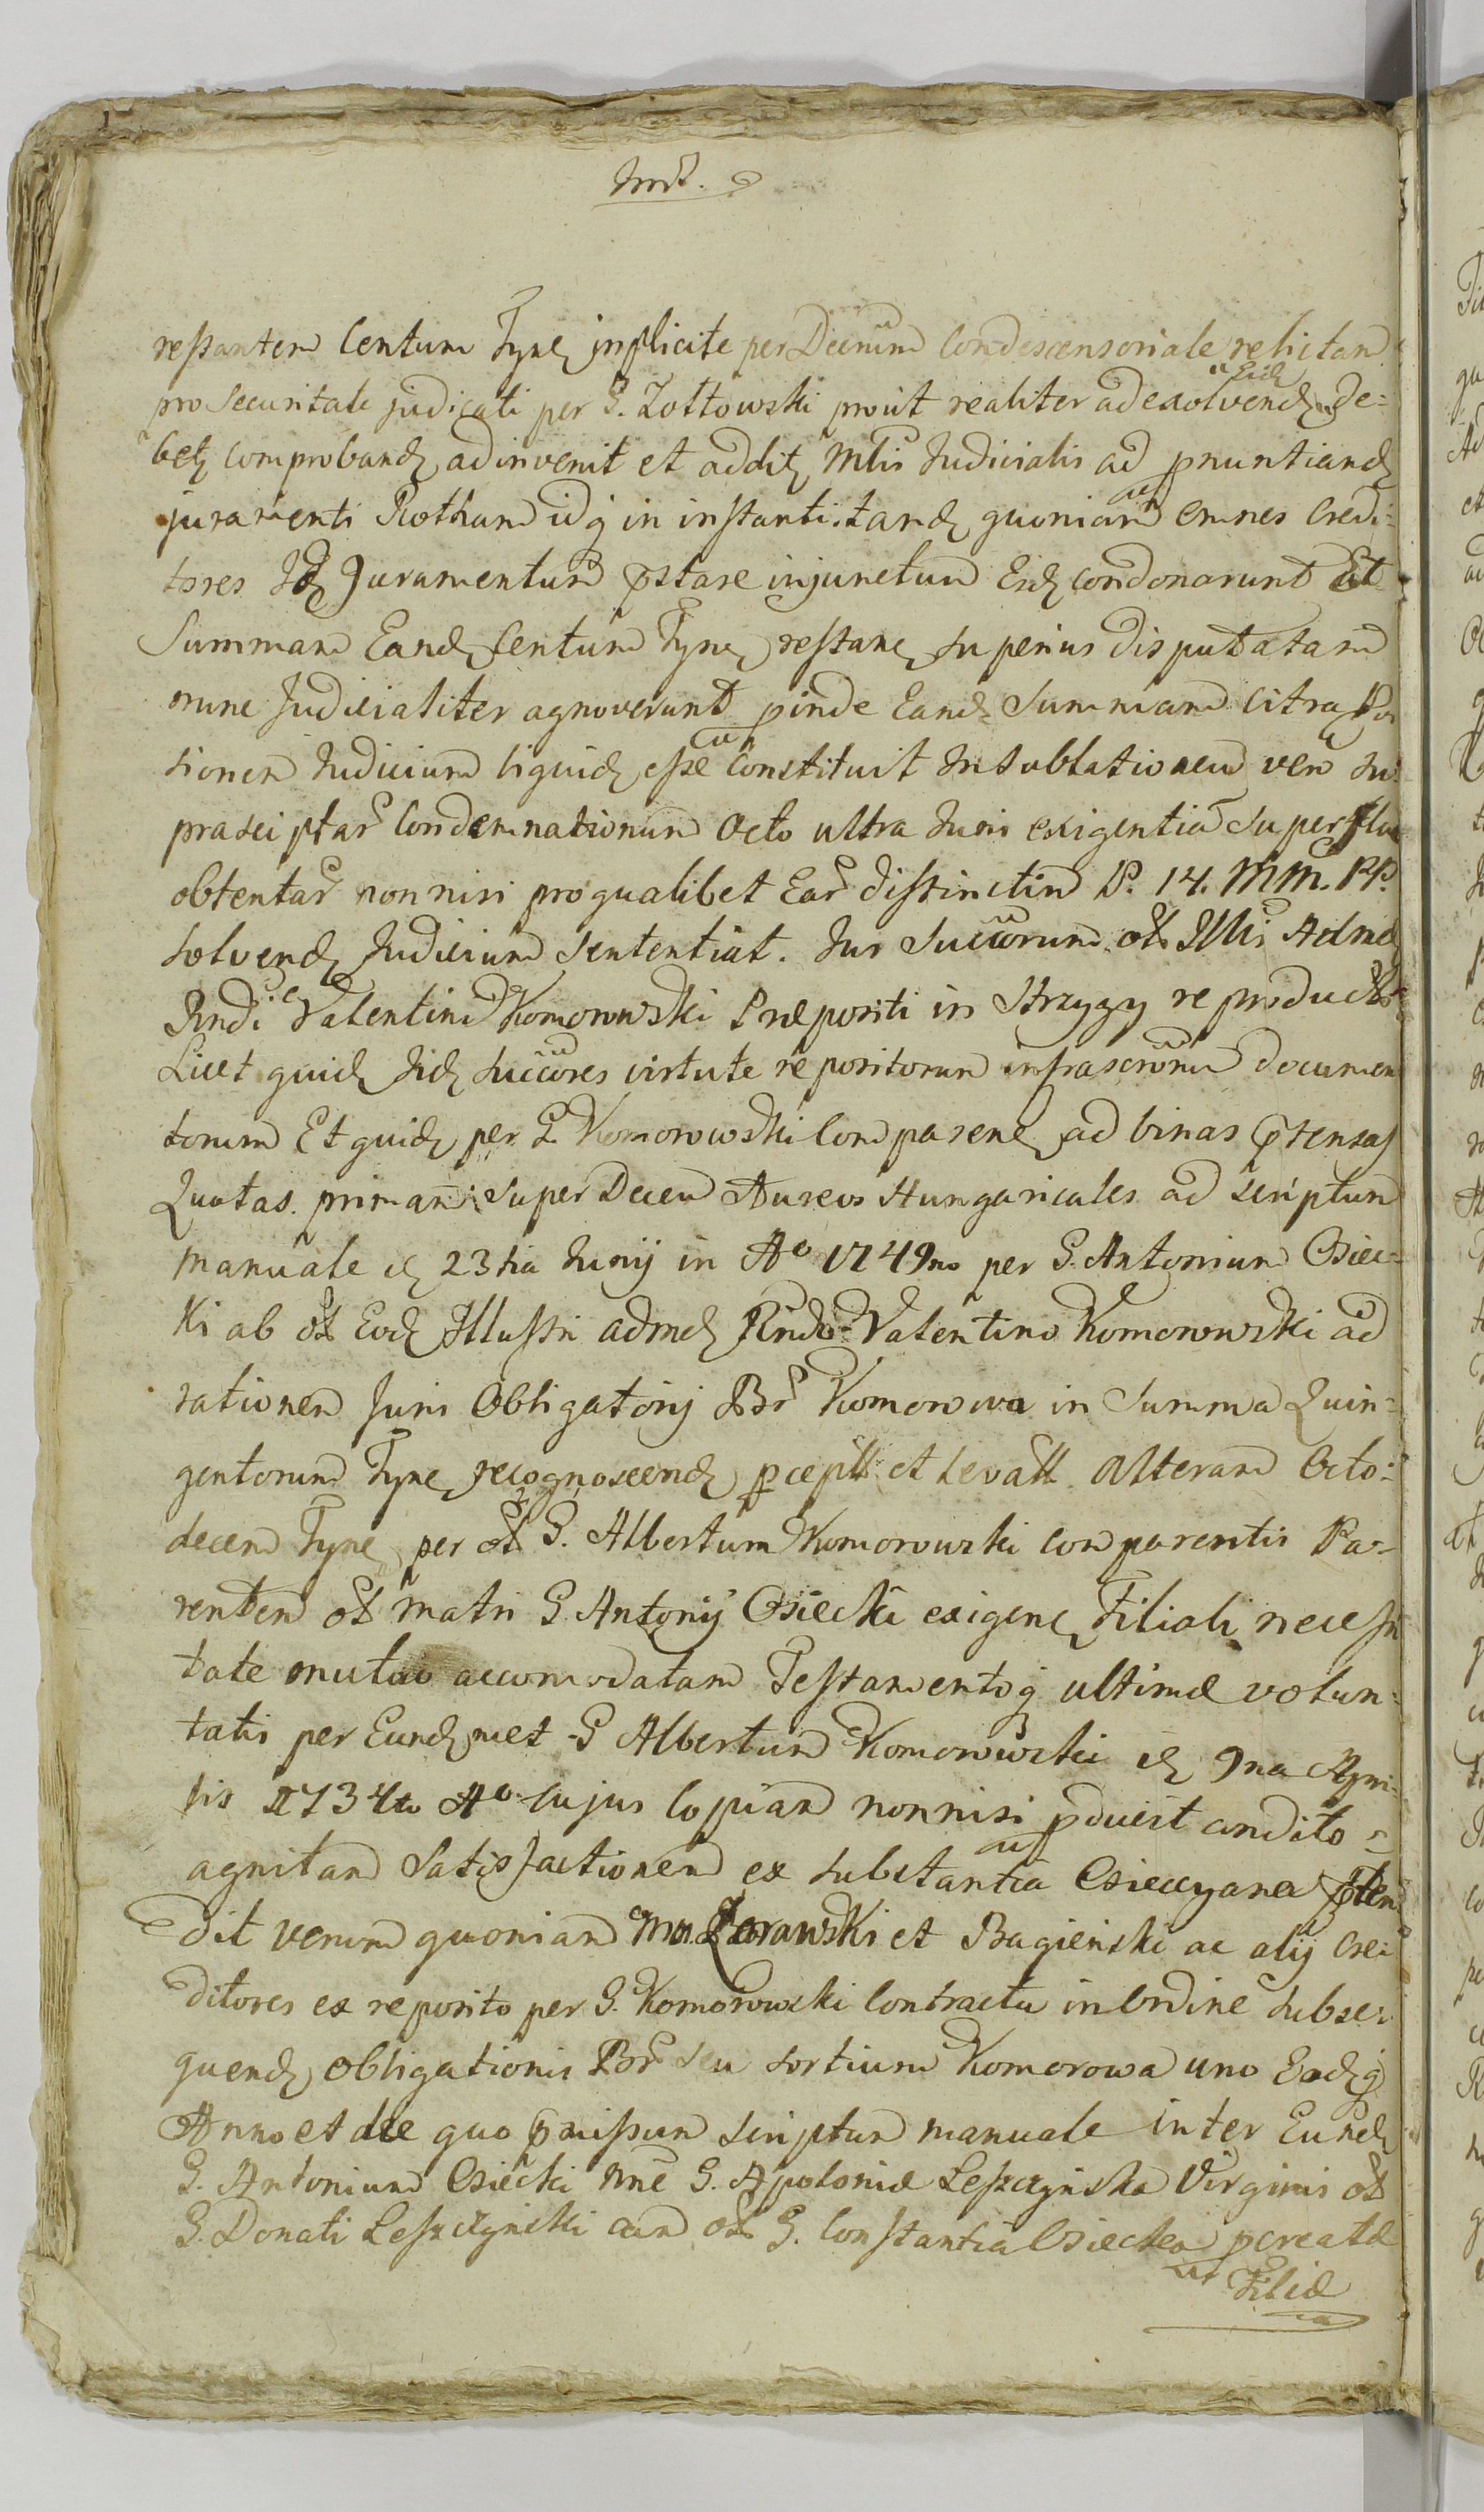 restantem Centum Tynf implicite per Decretum Condescensoriale relictam
pro securitate judicati per G. Zołtowski prout realiter ad exolvend Eid de=
bet comproband adinvenit et addit Mlis Judicialis ad pnuntiand
juramenti Rotham idq in instanti tand quoniam omnes Credi=
tores Id Juramentum pstare injunctum Eid condonarunt Et
Summam Eand Centum Tynf restan superius disputatam
nunc Judicialiter agnoverunt pinde Eand Summam citra
tionem Judicium liquid esse constituit Insublationem vero su
prasciptar Condemnationum Octo ultra Juris exigentia superflue
obtentar non nisi pro qualibet Ear distinctim P. 14. MM. PP.
solvend Judicium sententiat. Jus Succorum ol Illis Admd
Rndi Valentini Komorowski Præpositi in Strzygy reproduct
Licet quid Iid Succores virtute repositorum infrascrorum documen
torum Et quid per G. Komorowski Comparen ad binas ptensas
Quotas. primam super Decem Aureos Hungaricales ad scriptum
manuale d 23tia Junij in Ao 1749no per G. Antonium Osiec=
ki ab ol Eod Illussri admd Rndo Valentino Komorowski ad
rationem Juris Obligatorij Br Komorowa in Summa Quin=
gentorum Tynf recognoscend pcept et levat alteram Octo=
decem Tynf per ol G. Albertum Komorowski comparentis Pa=
rentem ol matri G. Antonij Osiecki exigen Filiali necessi
tate mutuo accomodatam Testamentoq ultimæ volun=
tatis per Eundmet G Albertum Komorowski d 9na Apri=
lis 1734to Ao cujus Copiam nonnisi pduxit condito
agnitam Satisfactionem ex substantia Osiecyana pten
dit verum quoniam MM. Zorawski et Bagienski ac alij Cre
ditores ex reposito per G. Komorowski Contractu in Ordine subse
quend obligationis Br seu sortium Komorowa uno Eodq
Anno et die quo pmissum scriptum manuale inter Eund
G. Antonium Osiecki nne G. Apoloniæ Leszczynska Virginis ol
G. Donati Leszczynski cum ol G. Constantia Osiecka pcreatæ
Filiæ